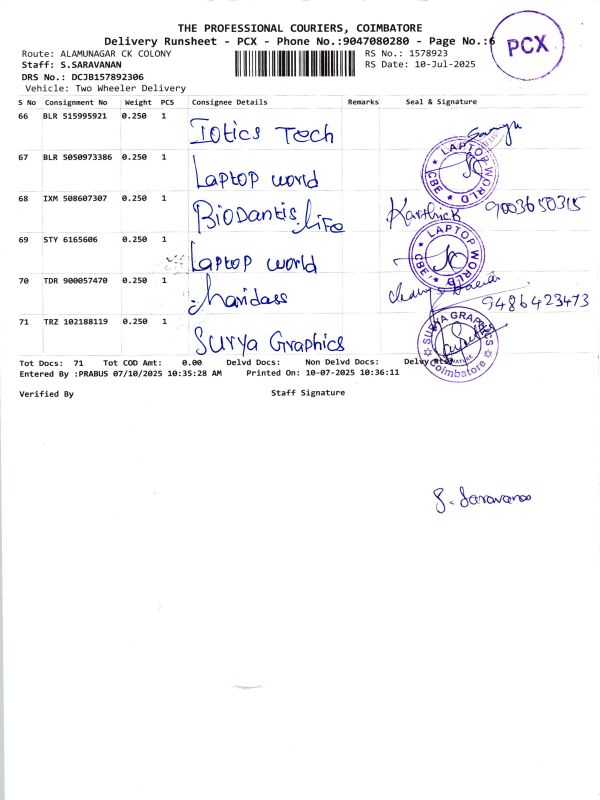 THE PROFESSIONAL COURIERS, COIMBATORE
Delivery Runsheet - PCX - Phone No.:9047080280 - Page No.:6
PCX
Route: ALAMUNAGAR CK COLONY RS No.: 1578923
Staff: S.SARAVANAN RS Date: 10-Jul-2025
DRS No.: DCJB157892306
Vehicle: Two Wheeler Delivery
S No Consignment No Weight PCS Consignee Details Remarks Seal & Signature
66 BLR 515995921 0.250 1 Iotics Tech
67 BLR 5050973386 0.250 1 Laptop world LAPTOP WORLD CBE
68 IXM 508607307 0.250 1 Biodantis life Karthick 9003650315
69 STY 6165606 0.250 1 Laptop world LAPTOP WORLD CBE
70 TDR 900057470 0.250 1 haridass 9486423473
71 TRZ 102188119 0.250 1 Surya Graphics SURYA GRAPHICS Coimbatore
Tot Docs: 71 Tot COD Amt: 0.00 Delvd Docs: Non Delvd Docs:
Entered By :PRABUS 07/10/2025 10:35:28 AM Printed On: 10-07-2025 10:36:11
Verified By Staff Signature
S. Saravanan